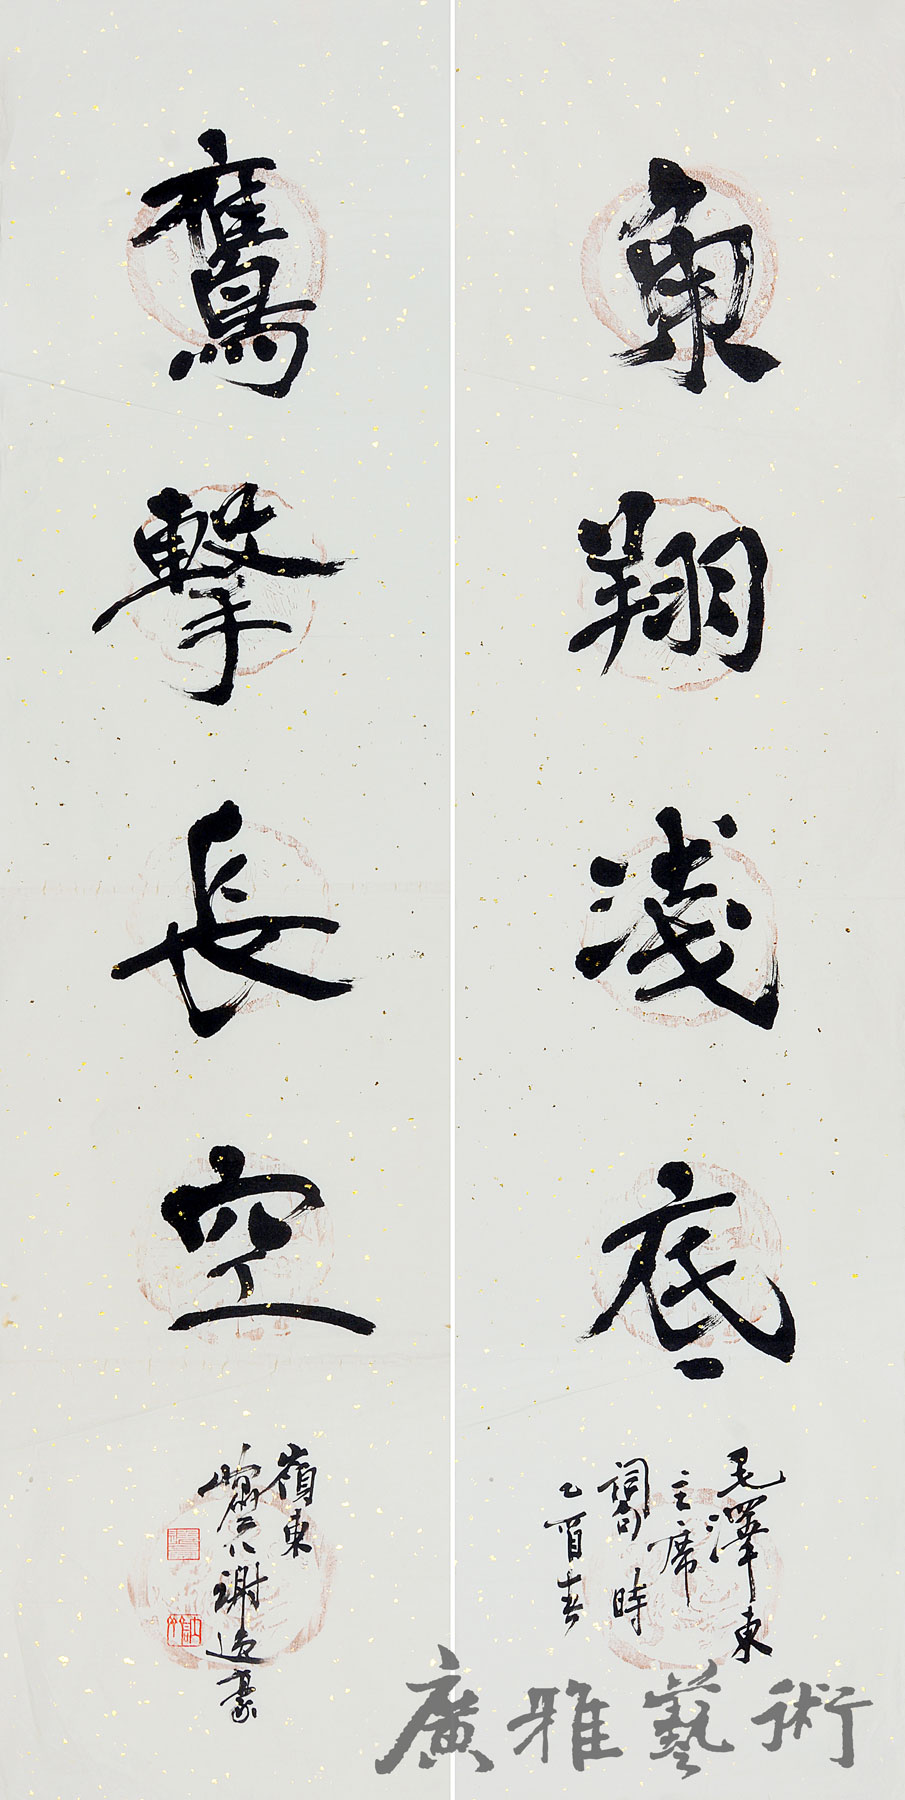 魚翔淺底
毛澤東
主席
詞句時
乙酉春
鷹擊長空
嶺東
謝豪
廣雅藝術